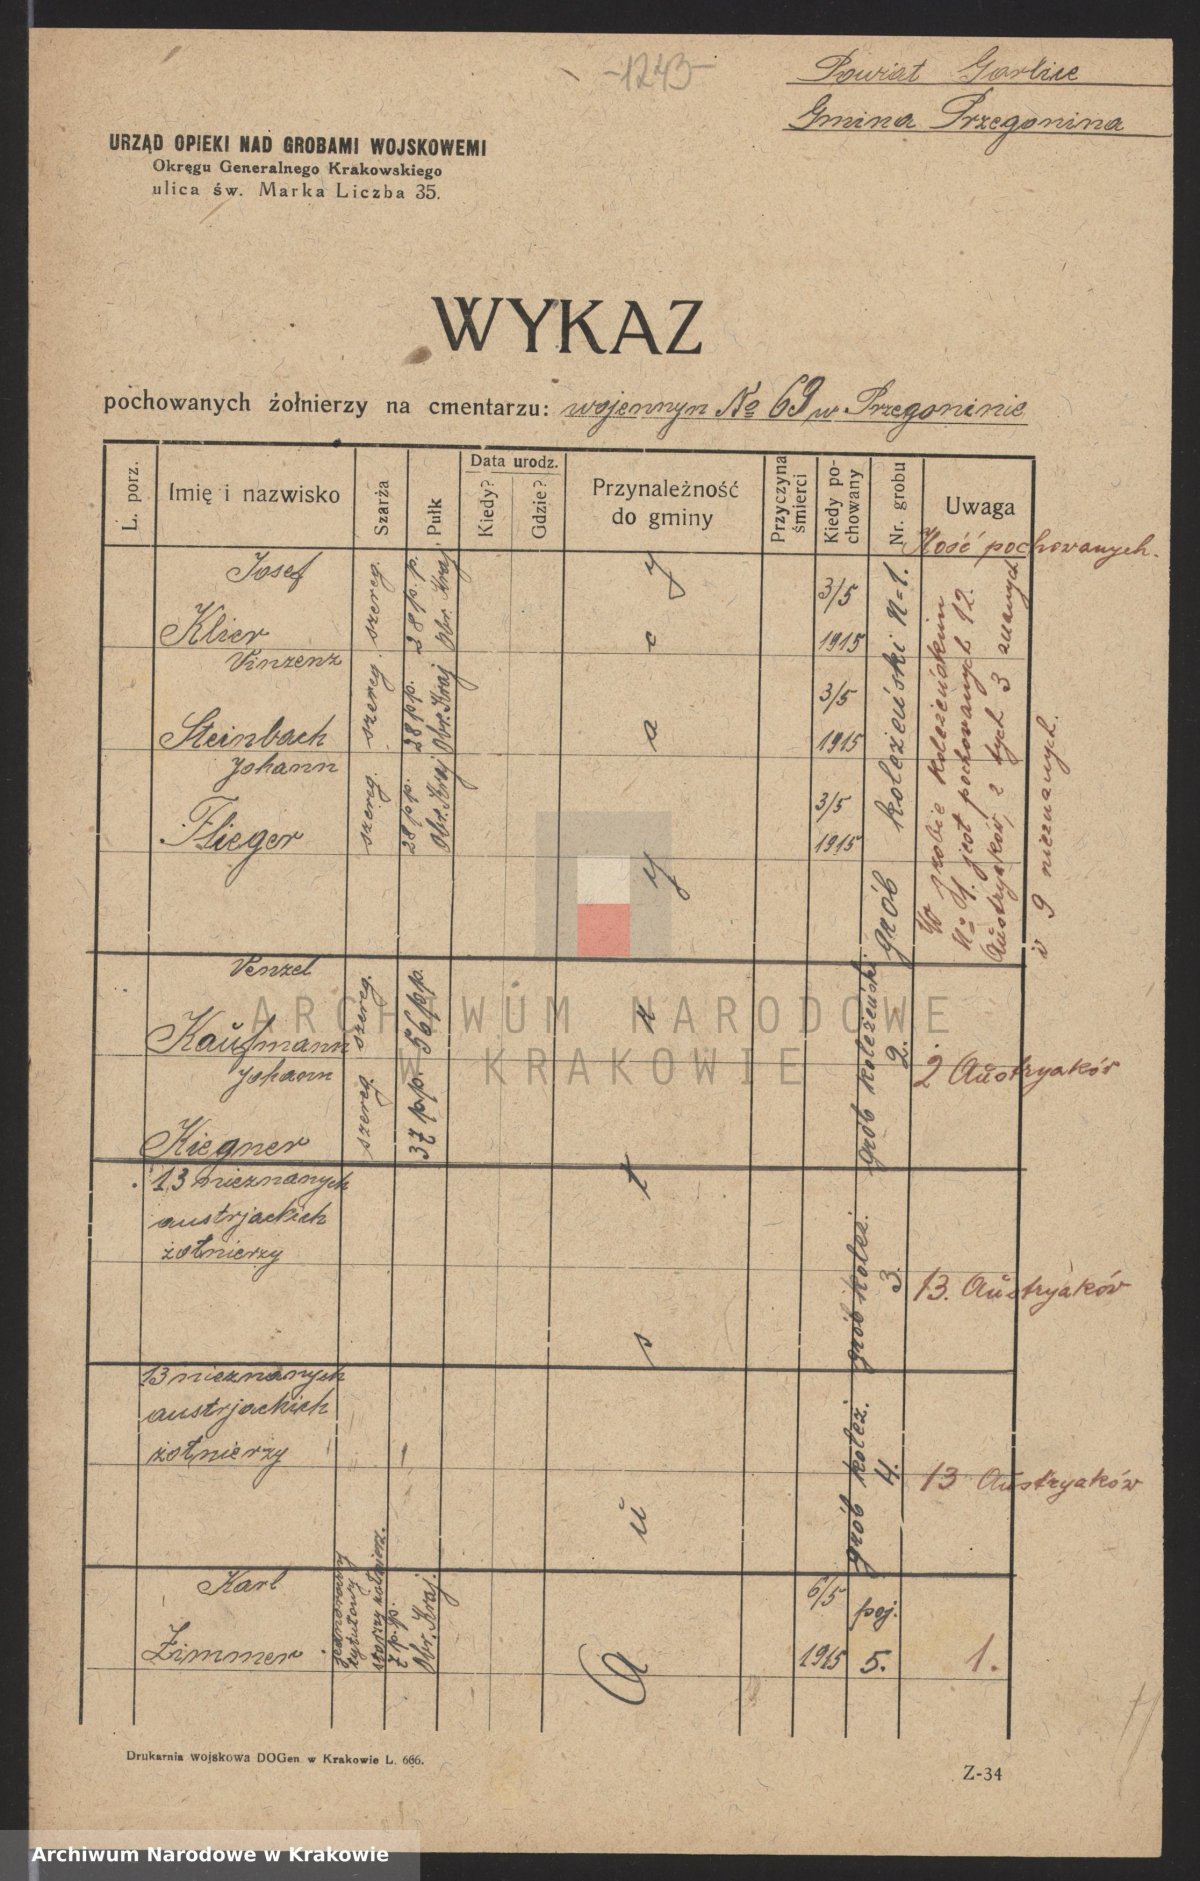 -1243-
Powiat Gorlice
Gmina Przegonina
URZĄD OPIEKI NAD GROBAMI WOJSKOWEMI
Okręgu Generalnego Krakowskiego
ulica św. Marka Liczba 35.
WYKAZ
pochowanych żołnierzy na cmentarzu: wojennym No 69 w Przegoninie
L. porz.
Imię i nazwisko
Szarża
Pułk
Data urodz.
Kiedy?
Gdzie?
Przynależność
do gminy
Przyczyna
śmierci
Kiedy po-
chowany
Nr. grobu
Uwaga
Ilość pochowanych.
Josef
Klier
szereg.
28 p. p.
Obr. Kraj
3/5
1915
Vinzenz
Steinbach
szereg.
28 p.p.
Obr. Kraj
3/5
1915
Johann
Flieger
szereg.
28 p.p.
Obr. Kraj
3/5
1915
grób koleżeński N=1.
W grobie koleżeńskim
No 1. jest pochowanych 12.
Austryaków, z tych 3 znanych
i 9 nieznanych.
Venzel
Kaufmann
szereg.
56 p.p.
Johann
Kiegner
szereg.
37 p.p.
grób koleżeński
2.
2 Austryaków
13 nieznanych
austrjackich
żołnierzy
grób koleż.
3.
13. Austryaków
13 nieznanych
austrjackich
żołnierzy
grób koleż.
4.
13 Austryaków
Karl
Zimmer
jednoroczny
tytułowy
starszy żołnierz.
7 p.p.
Obr. Kraj.
6/5
1915
poj.
5.
1.
Austryacy
ARCHIWUM NARODOWE
W KRAKOWIE
Drukarnia wojskowa DOGen w Krakowie L. 666.
Z-34
Archiwum Narodowe w Krakowie